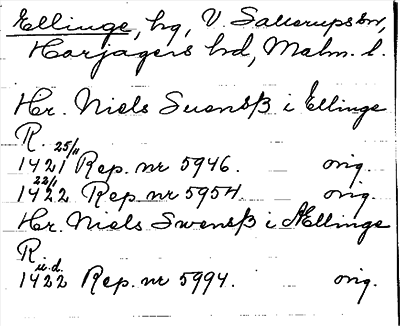 Ellinge, hg, V. Sallerups sn,
Harjagers hd, Malm. l.
Hr. Niels Suensß i Ellinge
R.
25/11
1421 Rep. nr 5946. orig.
22/1
1422 Rep. nr 5954. orig.
Hr. Niels Swensß i Ællinge
R.
u.d.
1422 Rep. nr 5994. orig.